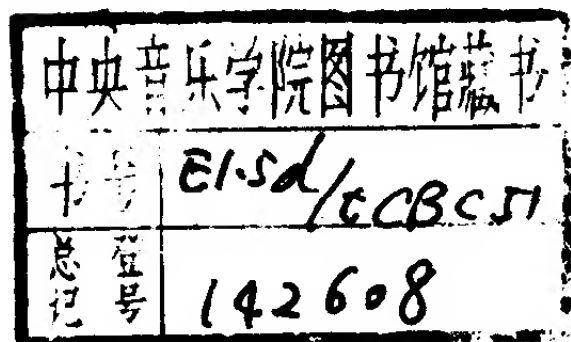 中央音乐学院图书馆藏书
书号 E1.5d/tCBC51
总登记号 142608